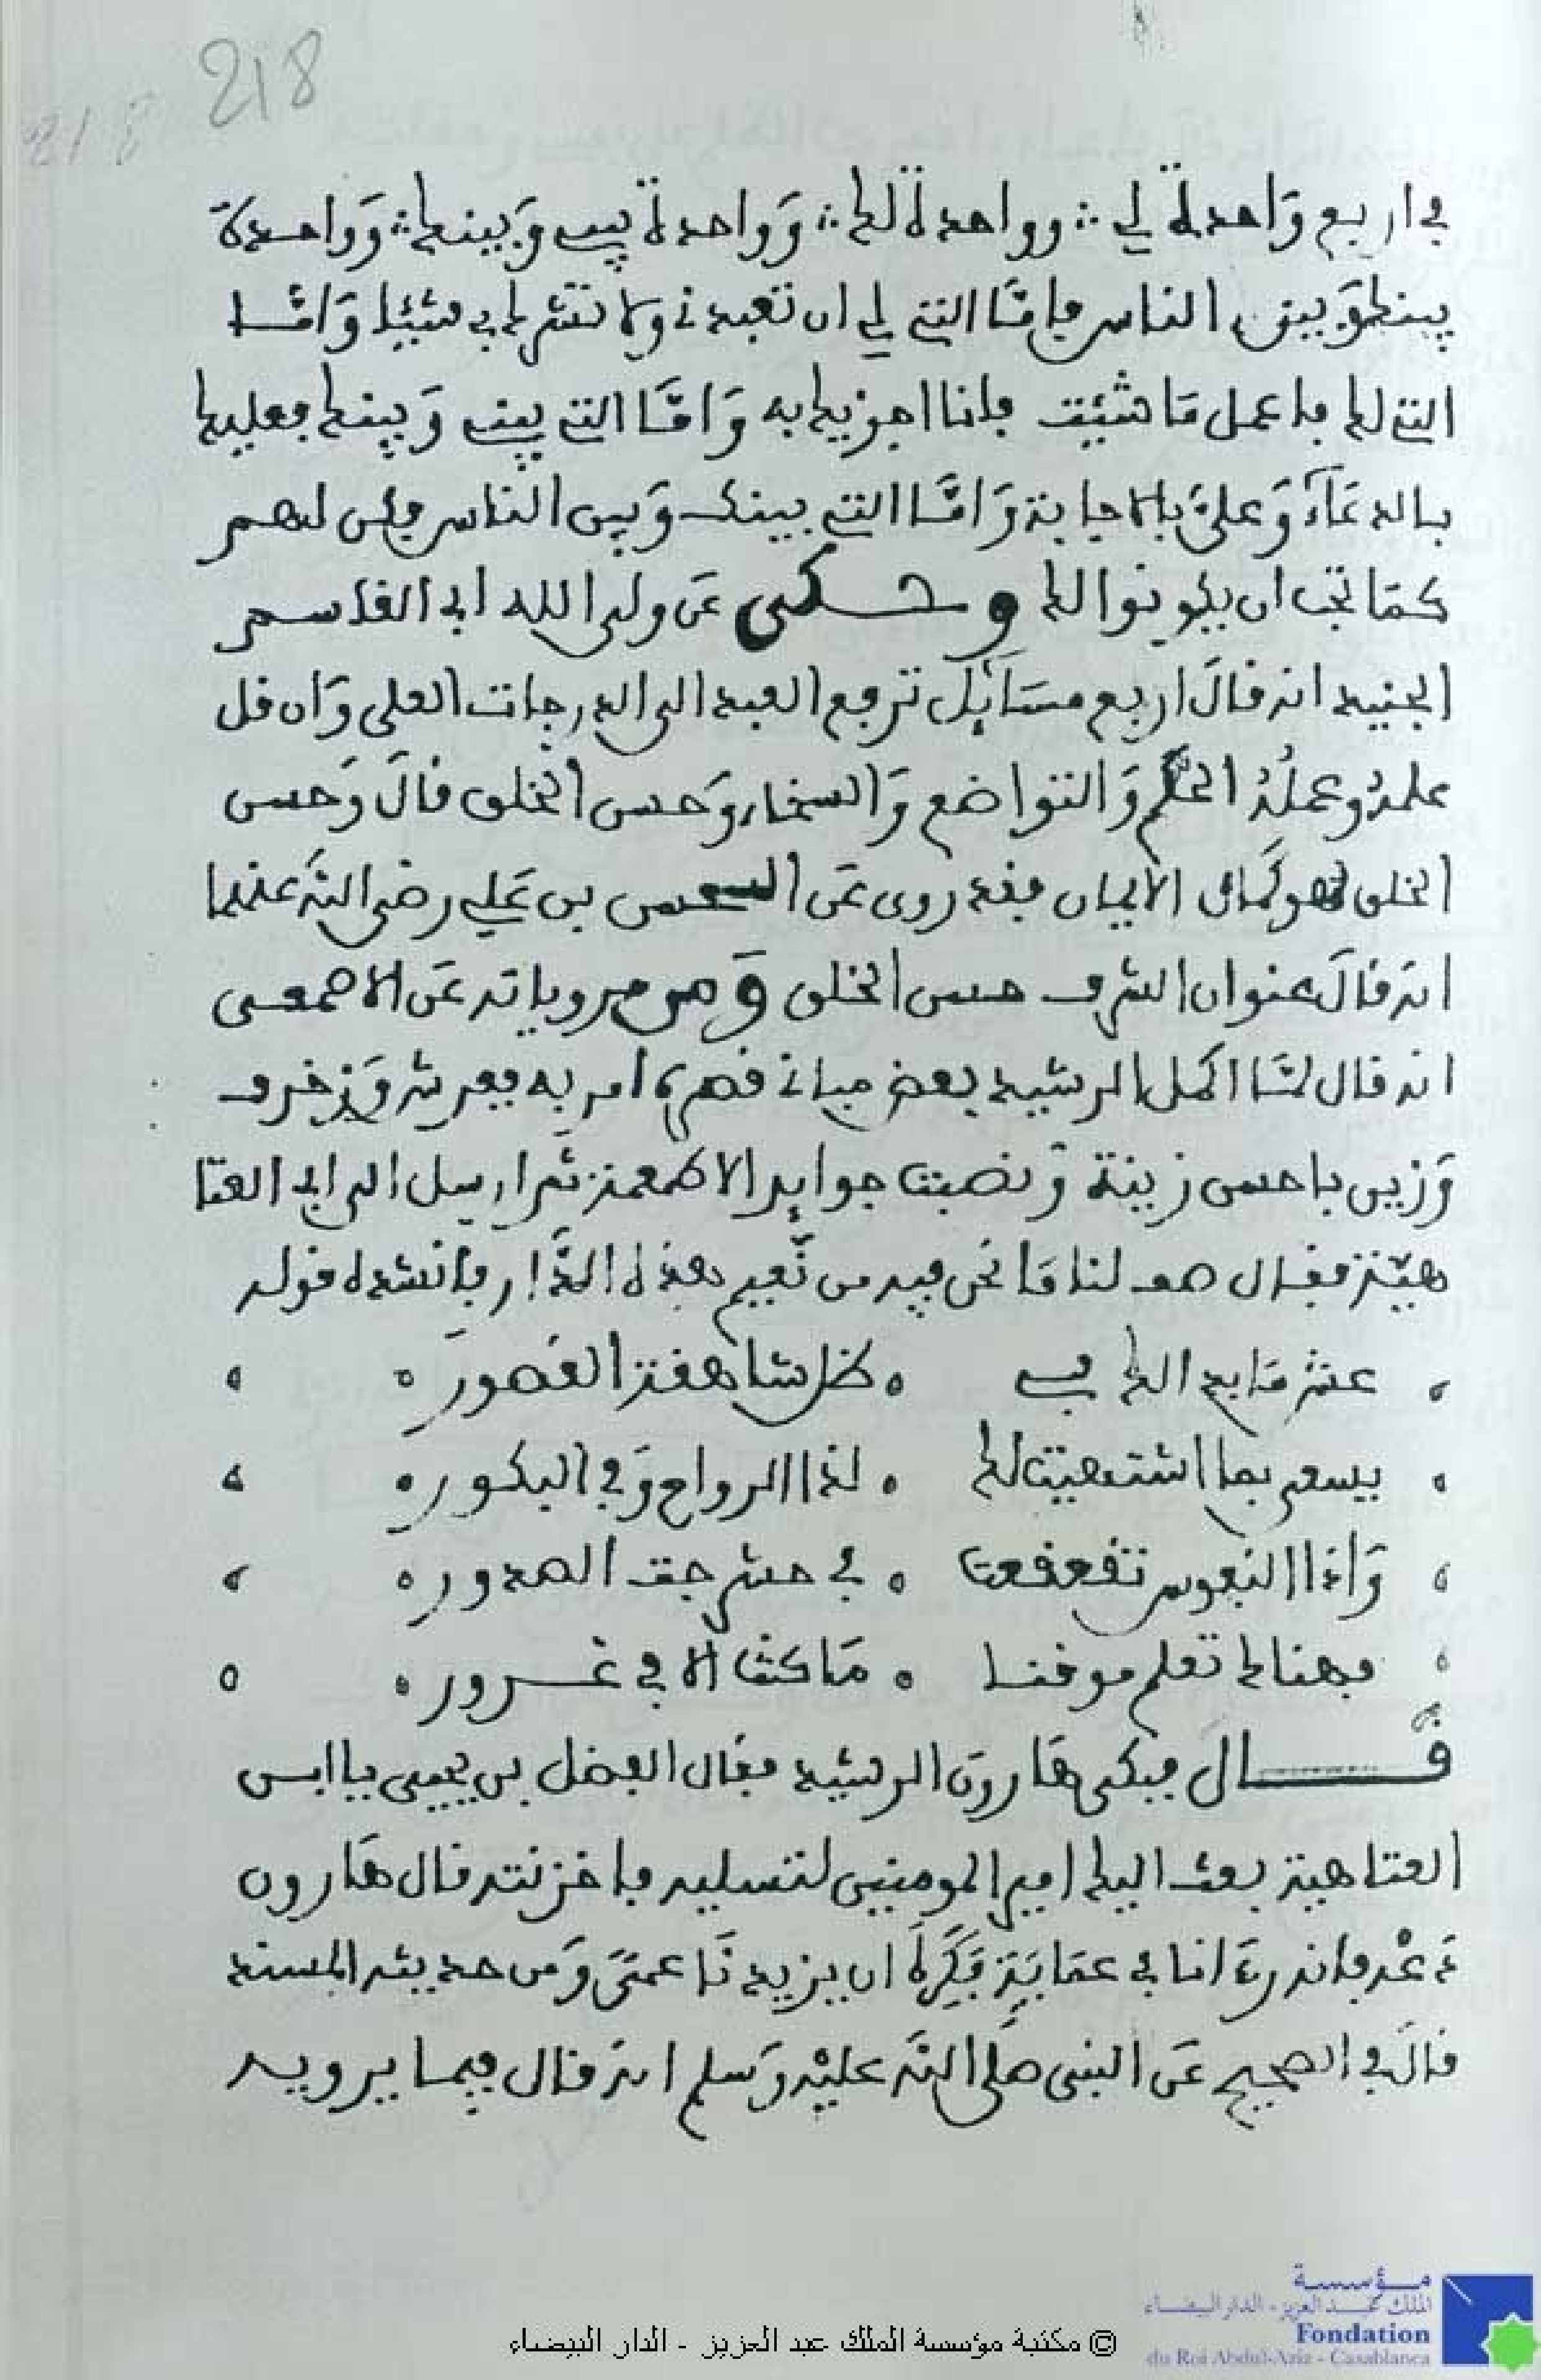 218
في اربع وَاحدة لي ؞ وواحدة لك ؞ وَواحدة بيني وَبينك ؞ وَواحدة
بينك وَبين الناس فامَّا التي لي ان تعبدني ولا تشرك بي شيئا وَامَّا
التي لك فاعمل مَا شئيت فانا اجزيك به وَامَّا التي بيني وَبينك فعليك
بالدعَآء وَعليَّ بالاجابة وَامَّا التي بينك وَبين الناس فكن لهم
كمَا تحب ان يكونوا لك وحكى عَن ولي الله ابي القاسم
الجنيد انه قالَ اربع مسَآئل ترفع العبد الى الدرجات العلى وَان قل
علمهُ وعملُهُ الحلم وَالتواضع وَالسخاء وَحسن الخلق قالَ وَحسن
الخلق هو كمال الايمان فقد روى عَن الحسن بن عَلي رضي اللَّه عنهما
انه قالَ عنوان الشرف حسن الخلق وَمن مروياته عَن الاصمعي
انه قال لمَّا اكمل الرشيد بعض مباني قصره امر به ففرش وَزخرف
وَزين باحسن زينة وَنصبت جوايد الاطعمة ثم ارسل الى ابي العتا
هية فقال صف لنا مَا نحن فيه من نَعيم هذه الدَّار فانشده قوله
عش مَا بدا لك في ٥ ظل شاهقة القصور ٥
يسعى بما اشتهيت لك ٥ لذا الرواح وَفي البكور ٥
وَاذا النفوس تقعقعت ٥ في حشرجت الصدور ٥
فهناك تعلم موقنا ٥ مَا كنت الا في غرور ٥
قَال فبكى هَارون الرشيد فقال الفضل بن يحيى يا ابن
العتاهية بعث اليك امير المومنين لتسليه فاخزنته قال هَارون
دَعْه فانه رءَانا في عمَايَةٍ فَكَرِهَ ان يزيدنَا عمىً وَمن حديثه المسند
قالَ في الصحيح عَن النبي صلى اللَّه عليْه وَسلم انه قال فيما يرويه
مؤسسة
الملك عبد العزيز - الدار البيضاء
Fondation
du Roi Abdul-Aziz - Casablanca
© مكتبة مؤسسة الملك عبد العزيز - الدار البيضاء